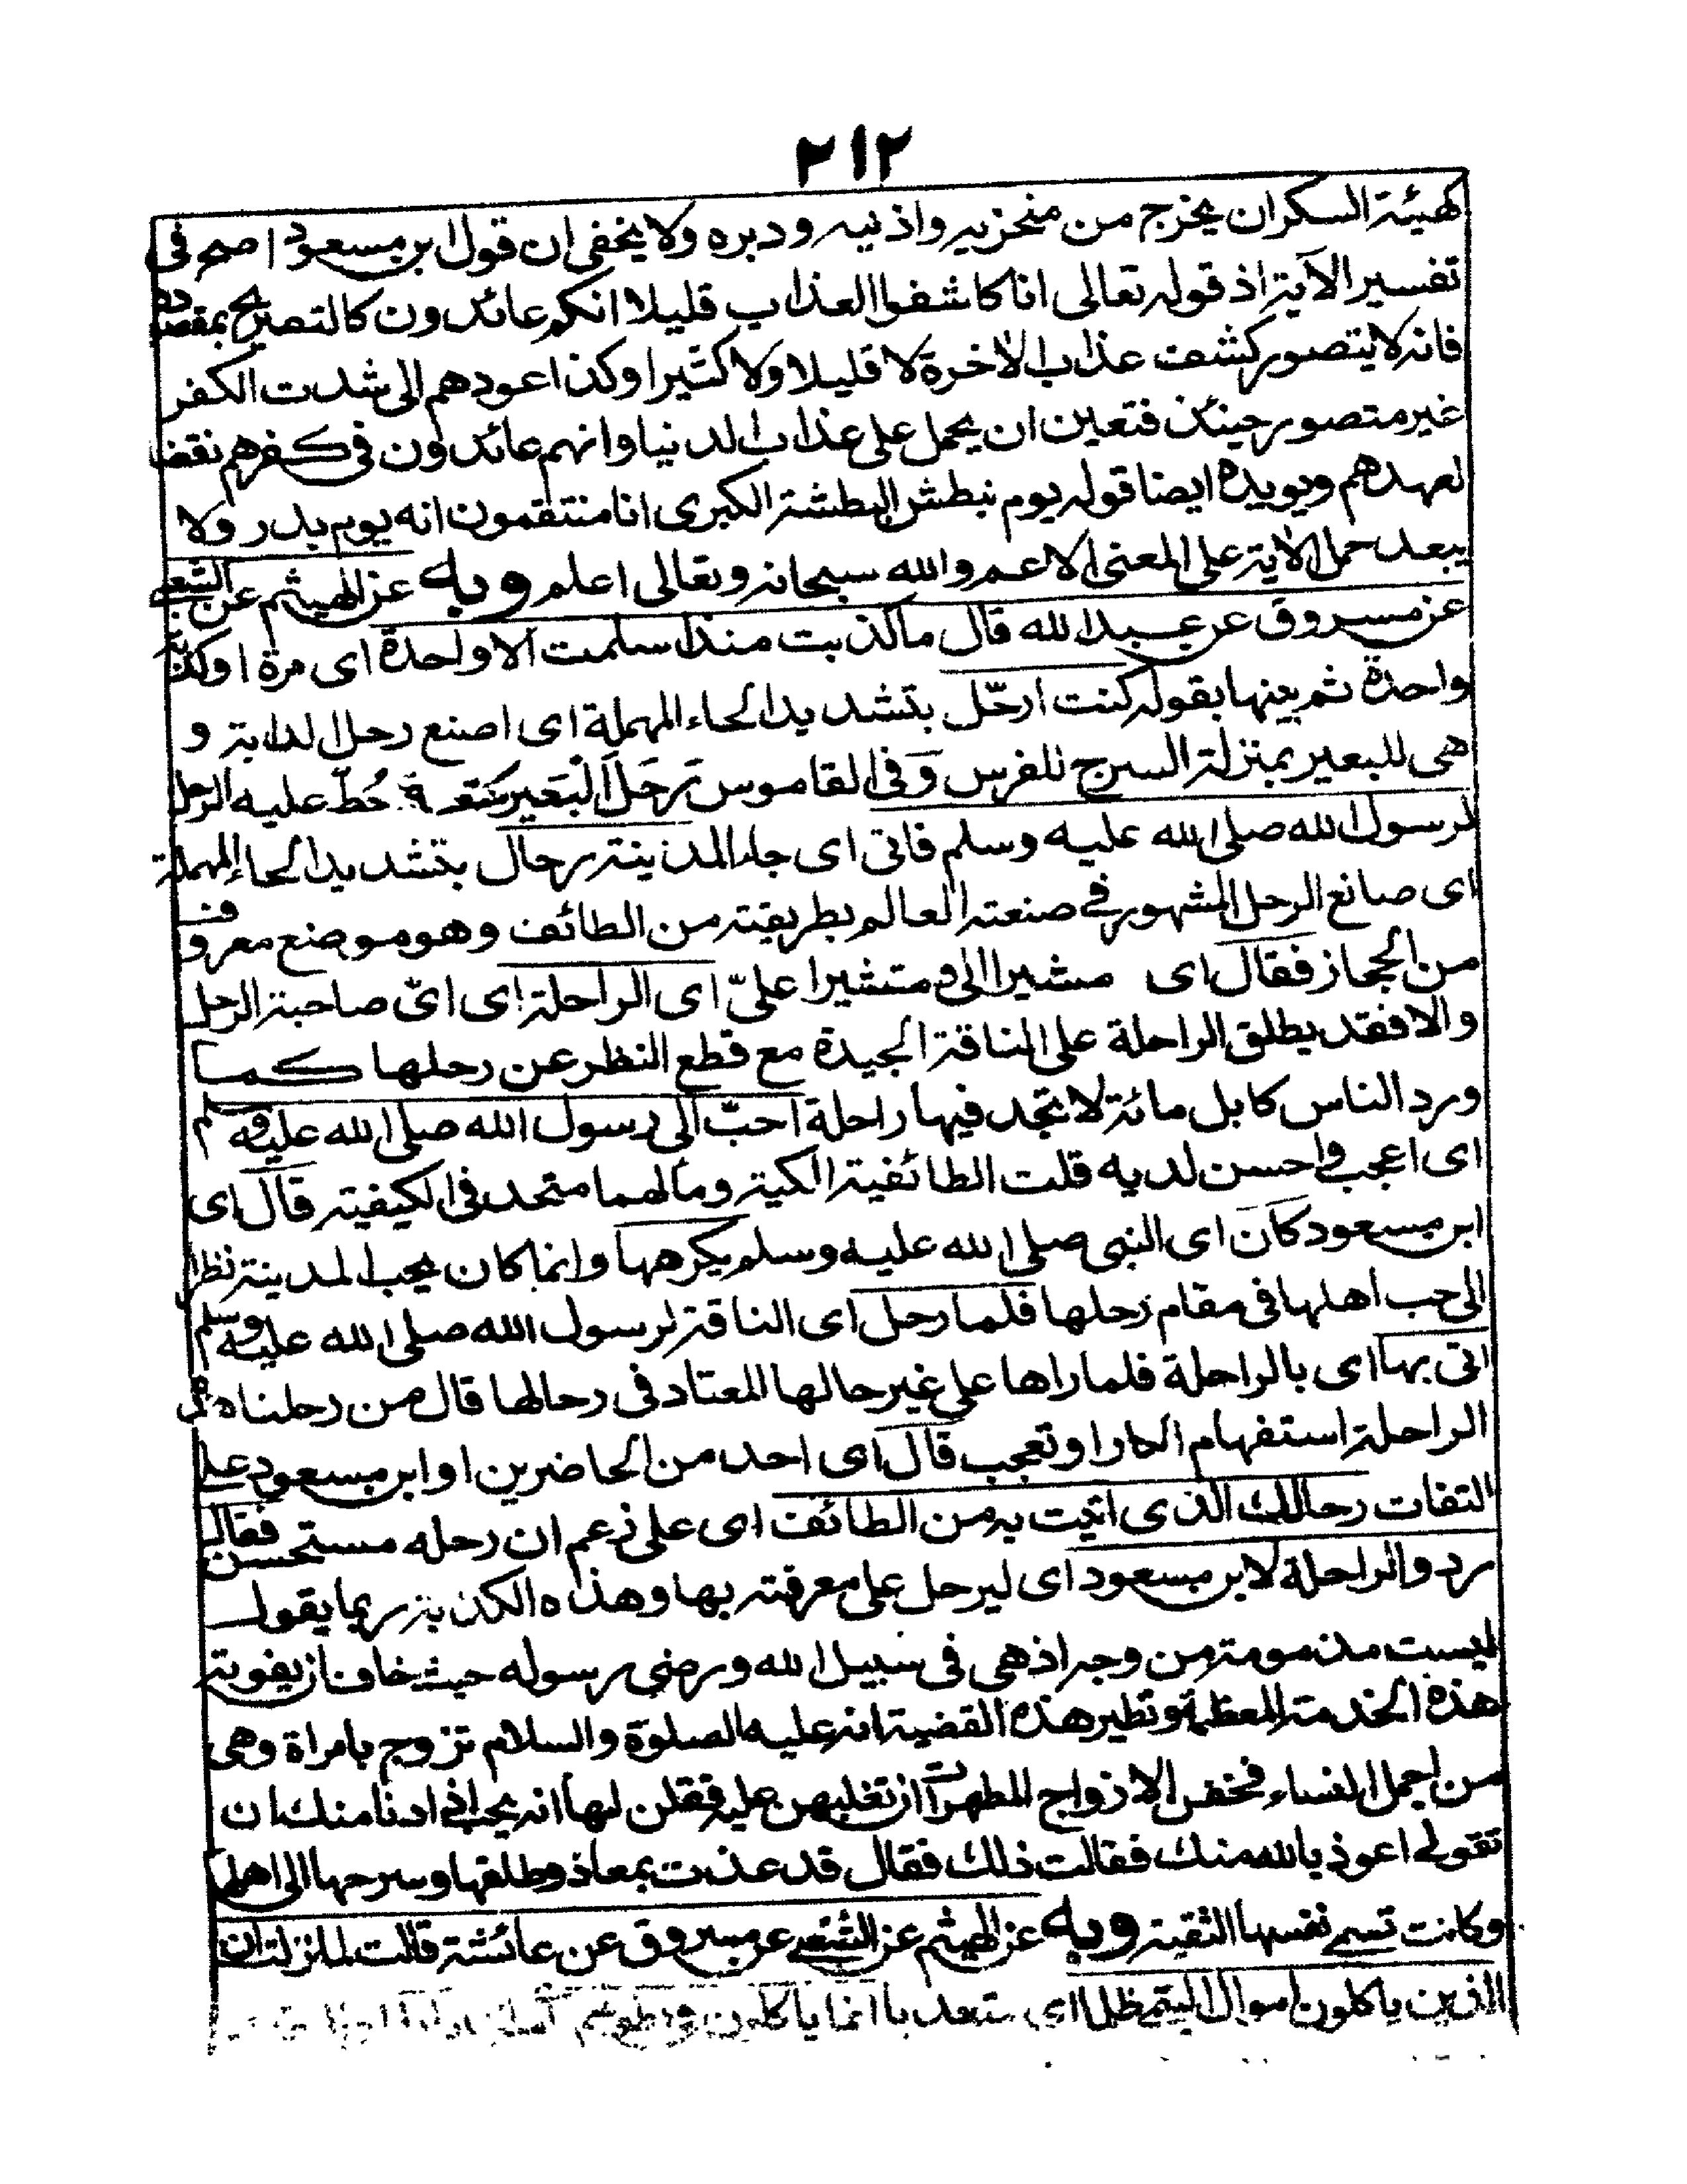 ٢١٢
كهيئة السكران يخرج من منخزيه واذنيه ودبره ولا يخفى ان قول ابن مسعود اصح فى
تفسير الآية اذ قوله تعالى انا كاشفوا العذاب قليلا انكم عائدون كالتصريح بمقصده
فانه لا يتصور كشف عذاب الاخرة لا قليلا ولا كثيرا وكذا عودهم الى شدت الكفر
غير متصور حينئذ فتعين ان يحمل على عذاب الدنيا وانهم عائدون فى كفرهم نقض
لعهدهم ويويده ايضا قوله يوم نبطش البطشة الكبرى انا منتقمون انه يوم بدر ولا
يبعد حمل الاية على المعنى الاعم والله سبحانه وتعالى اعلم وبه عن الهيثم عن الشعبي
عن مسروق عن عبد الله قال ما كذبت منذ اسلمت الا واحدة اى مرة او كذبة
واحدة ثم بينها بقوله كنت ارحّل بتشديد الحاء المهملة اى اصنع رحل الدابة و
هى للبعير بمنزلة السرج للفرس وفى القاموس رَحَلَ الْبَعِير كمنعه حُطّ عليه الرحل
لرسول الله صلى الله عليه وسلم فاتى اى جاء المدينة برحال بتشديد الحاء المهملة
اى صانع الرحل المشهور فى صنعته العالم بطريقته من الطائف وهو موضع معروف
من الحجاز فقال اى مشيرا الى ومتشيرا علىّ اى الراحلة اى اىّ صاحبة الرحل
والا فقد يطلق الراحلة على الناقة الجيدة مع قطع النظر عن رحلها كما
ورد الناس كابل مائة لا تجد فيها راحلة احبّ الى رسول الله صلى الله عليه وسلم
اى اعجب واحسن لديه قلت الطائفية الكية ومألهما متحد فى الكيفية قال اى
ابن مسعود كان اى النبى صلى الله عليه وسلم يكرهها وانما كان يحب المدينة نظرا
الى حب اهلها فى مقام رحلها فلما رحل اى الناقة لرسول الله صلى الله عليه وسلم
اتى بها اى بالراحلة فلما راها على غير حالها المعتاد فى رحالها قال من رحلنا هذه
الراحلة استفهام انكار او تعجب قال اى احد من الحاضرين او ابن مسعود على
التفات رحالك الذى اتيت به من الطائف اى على زعم ان رحله مستحسن فقال
ردوا الراحلة لابن مسعود اى ليرحل على معرفته بها وهذه الكذبة ربما يقول
ليست مذمومة من وجه اذ هى فى سبيل الله ورضى رسوله حيث خاف ان يفوته
هذه الخدمة المعظمة ونظير هذه القضية انه عليه الصلوة والسلام تزوج بامراة وهى
من اجمل النساء فخفن الازواج المطهرات ان تغلبهن عليه فقلن لها انه يحب اذا دنا منك ان
تقولى اعوذ بالله منك فقالت ذلك فقال قد عذت بمعاذ وطلقها وسرحها الى اهلها
وكانت تسمى نفسها الشقية وبه عن الهيثم عن الشعبى عن مسروق عن عائشة قالت لما نزلت ان
الذين ياكلون اموال اليتمى ظلما اى متعديا انما ياكلون فى بطونهم